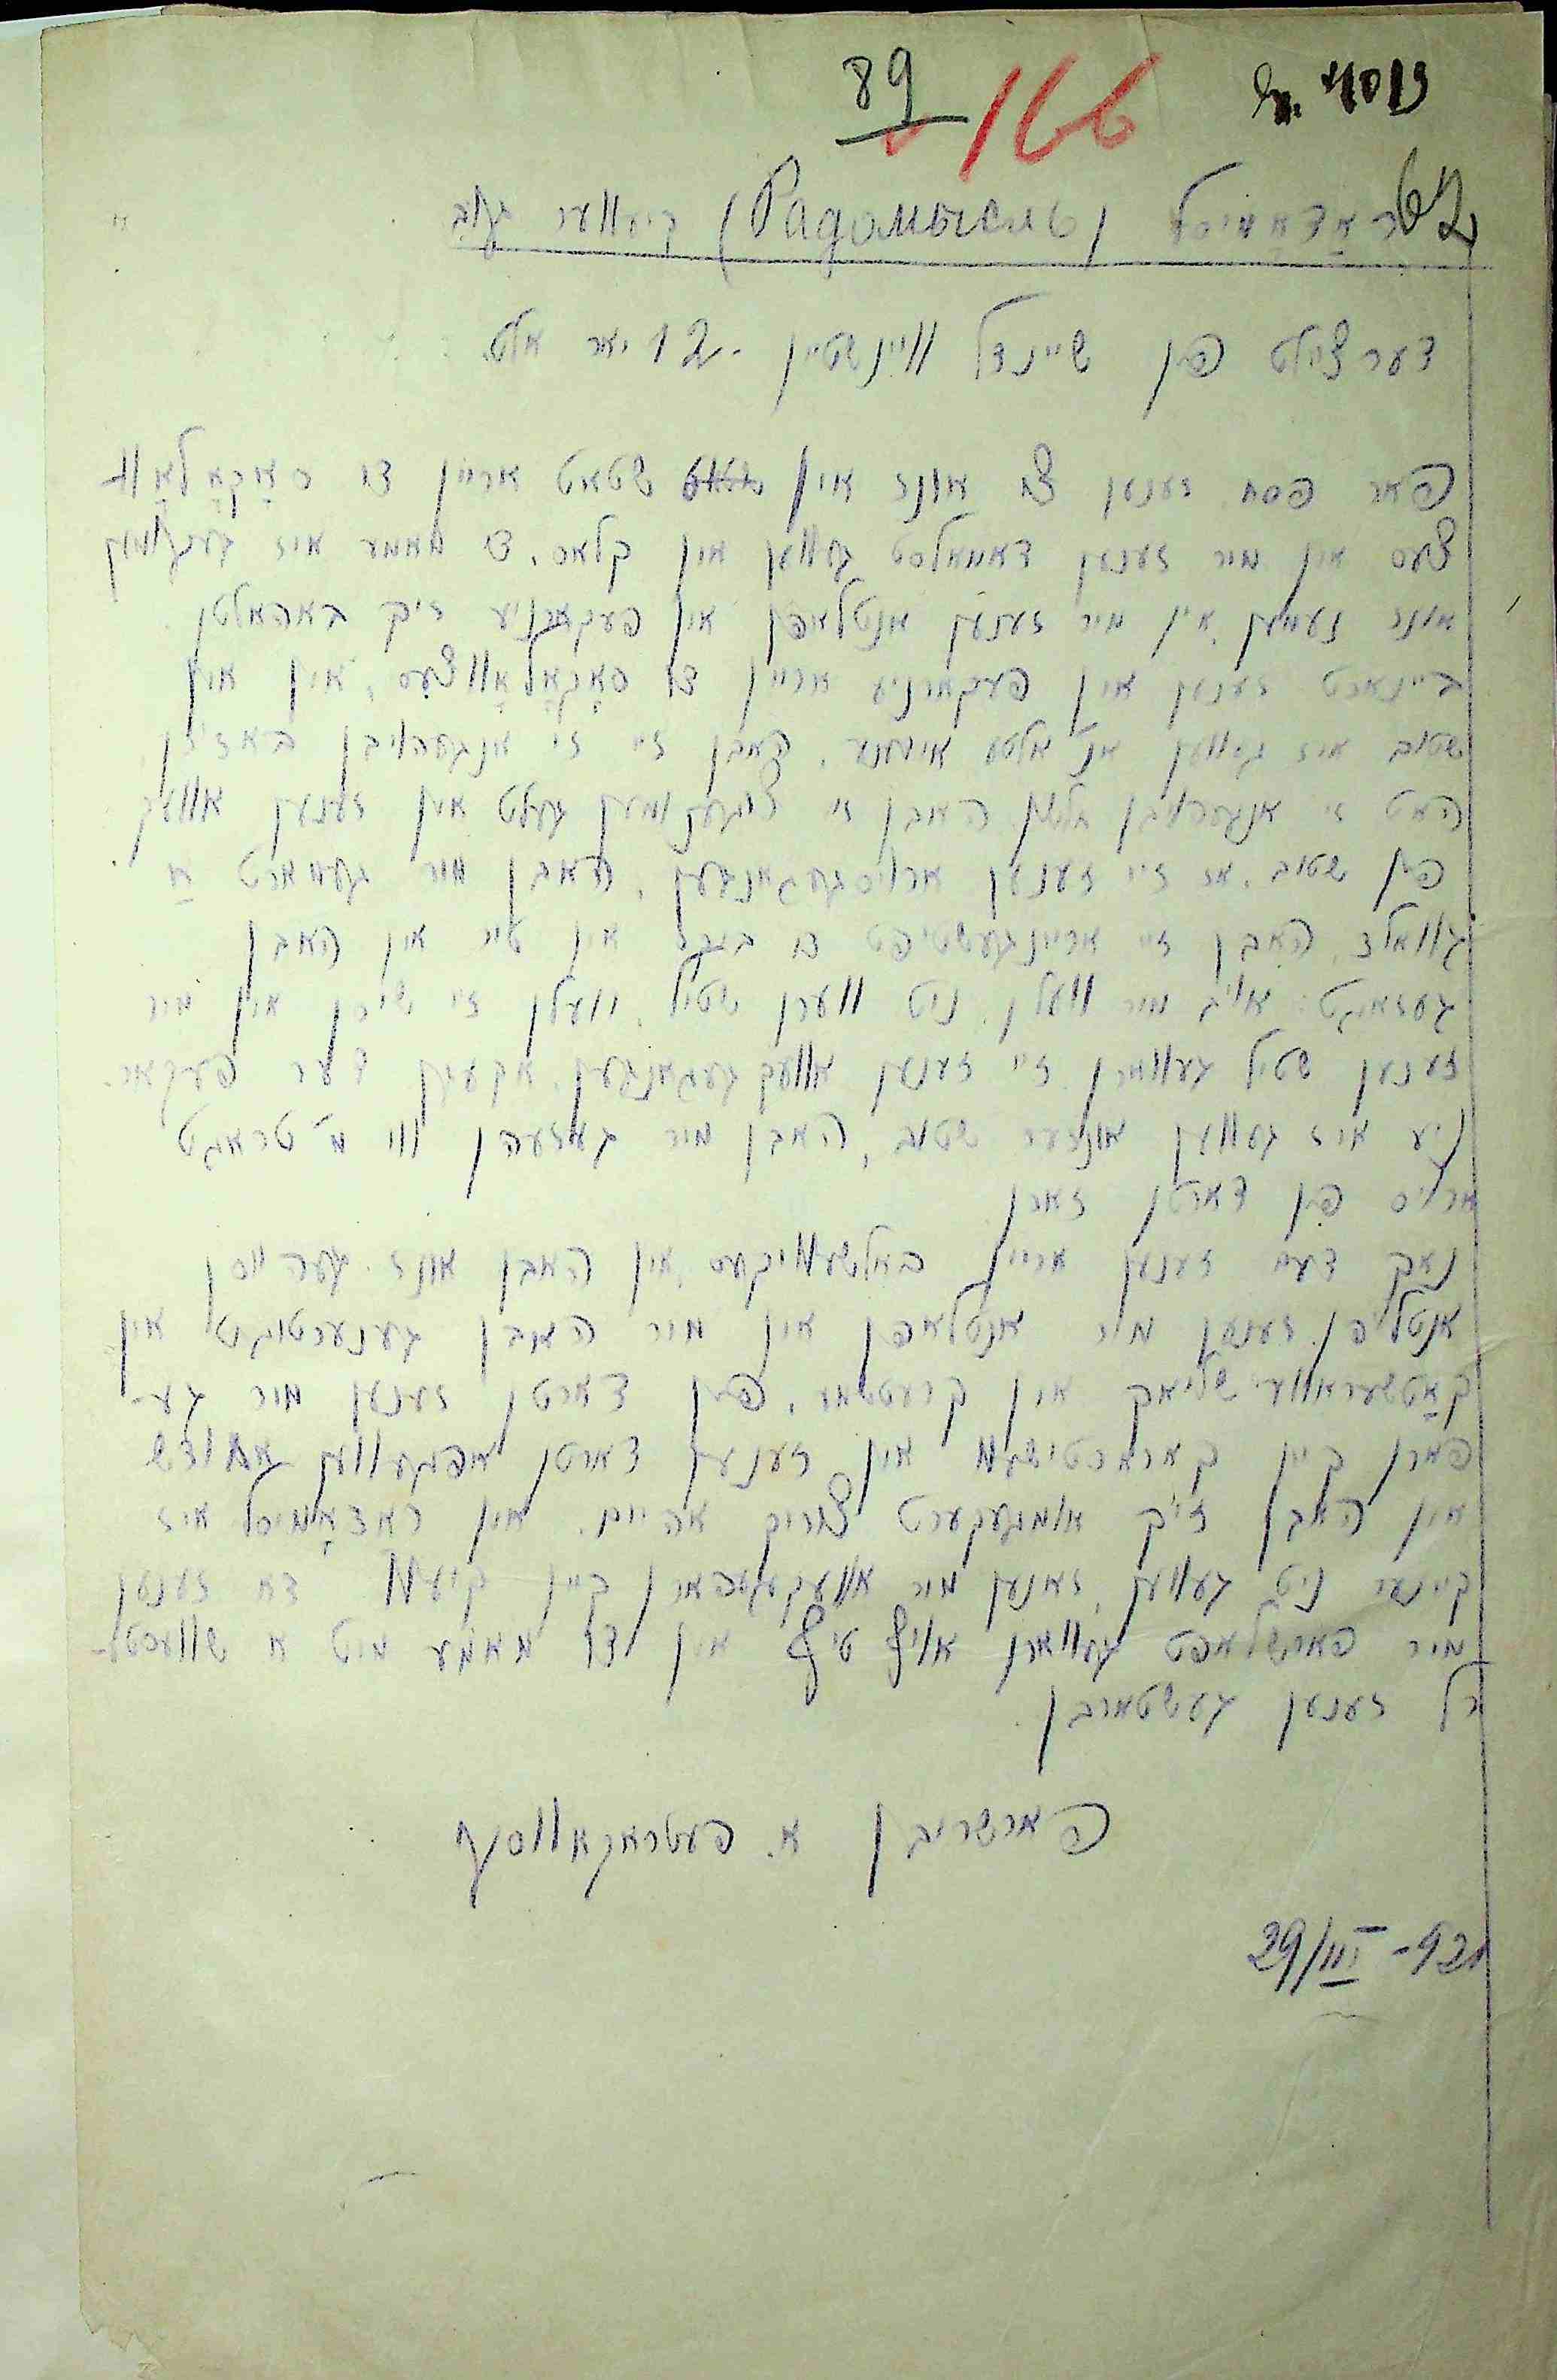 89
166
67
ראַדאָמיסל (Радомысль) קיעווער גוב
דערציילט פון שיינדל וויינשטיין - 12 יאר אלט.
פאר פסח זענען צו אונז אין שטאט אריין די סאָקאָלאָוו-
צעס און מיר זענען דאמאלסט געווען אין קלאס, די מאמע איז געקומען
אונז נעמען, און מיר זענען אנטלאפן אין פעקארניע זיך באהאלטן.
ביינאכט זענען אין פעקארניע אריין די סאָקאָלאָווצעס, און אין
שטוב איז געווען אן אלטע אידענע, האבן זיי זי אנגעהויבן
האט זי אנגעהויבן האבן זיי צוגענומען געלט און זענען אוועק
פון שטוב. אז זיי זענען ארויסגעגאנגען, האבן מיר געמאכט אַ
גוואלד, האבן זיי אריינגעשטיפט די ביקס אין טיר און האבן
געזאגט: אויב מיר וועלן ניט ווערן שטיל, וועלן זיי שיסן און מיר
זענען שטיל געווארן. זיי זענען אוועקגעגאנגען. אקעגן דער פעקאר-
ניע איז געווען אונזער שטוב, האבן מיר געזעהן ווי מ'טראגט
ארויס פון דארטן זאכן.
נאך דעם זענען אריין באלשעוויקעס, און האבן אונז געהייסן
אנטלויפן. זענען מיר אנטלאפן און מיר האבן גענעכטיגט אין
קאָטשעראווער שליאך אין קרעטשמע, פון דארטן זענען מיר גע-
פארן קיין קאראסטישעוו און זענען דארטן אפגעווען
און האבן זיך אומגעקערט צוריק אהיים. אין ראַדאָמיסל איז
קיינער ניט געווען, זענען מיר אוועקגעפארן קיין קיעוו דא זענען
מיר פארשלאפט געווארן אויף טיף און די מאמע מיט א שוועסטע-
רל זענען געשטארבן.
פארשריבן א. פעטראקאווסקי
29/III - 921